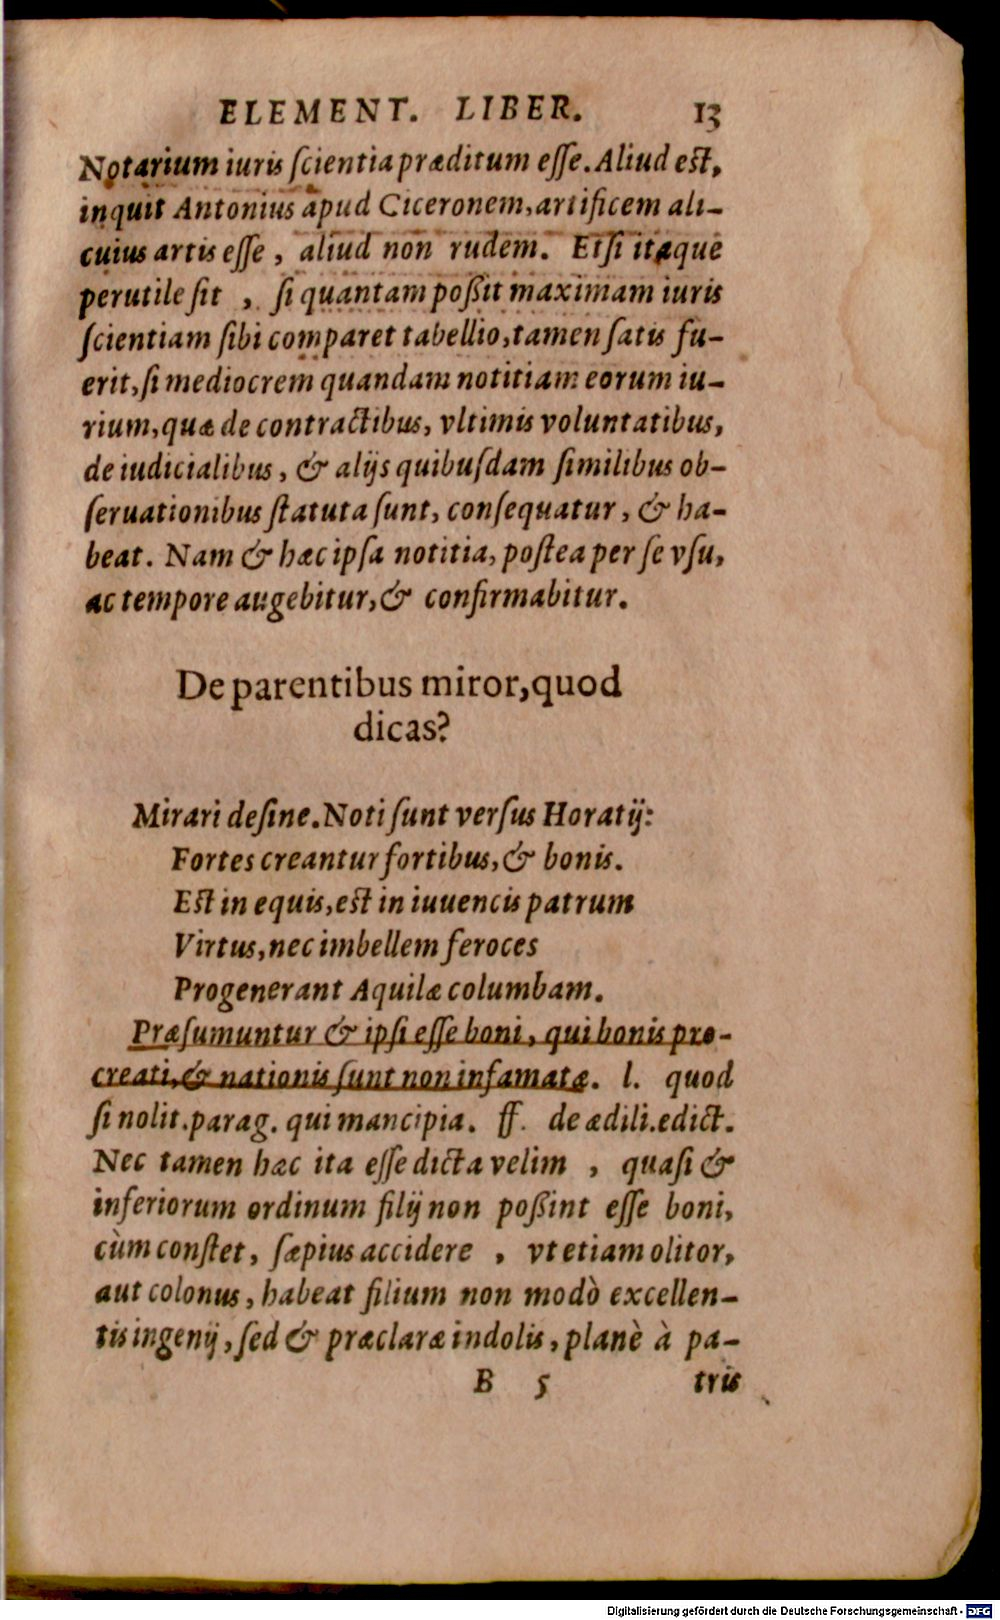 ELEMENT. LIBER. 13
Notarium iuris ſcientia præditum eſſe. Aliud eſt,
inquit Antonius apud Ciceronem, artificem ali-
cuius artis eſſe, aliud non rudem. Etſi itaque
perutile ſit, ſi quantam poßit maximam iuris
ſcientiam ſibi comparet tabellio, tamen ſatis fu-
erit, ſi mediocrem quandam notitiam eorum iu-
rium, quæ de contractibus, vltimis voluntatibus,
de iudicialibus, & alijs quibuſdam ſimilibus ob-
ſeruationibus ſtatuta ſunt, conſequatur, & ha-
beat. Nam & hæc ipſa notitia, poſtea per ſe vſu,
ac tempore augebitur, & confirmabitur.
De parentibus miror, quod
dicas?
Mirari deſine. Noti ſunt verſus Horatij:
Fortes creantur fortibus, & bonis.
Eſt in equis, eſt in iuuencis patrum
Virtus, nec imbellem feroces
Progenerant Aquilæ columbam.
Præſumuntur & ipſi eſſe boni, qui bonis pro-
creati, & nationis ſunt non infamatæ. l. quod
ſi nolit. parag. qui mancipia. ff. de ædili. edict.
Nec tamen hæc ita eſſe dicta velim, quaſi &
inferiorum ordinum filij non poßint eſſe boni,
cùm conſtet, ſæpius accidere, vt etiam olitor,
aut colonus, habeat filium non modò excellen-
tis ingenij, ſed & præclaræ indolis, planè à pa-
B 5 tris
Digitalisierung gefördert durch die Deutsche Forschungsgemeinschaft - DFG